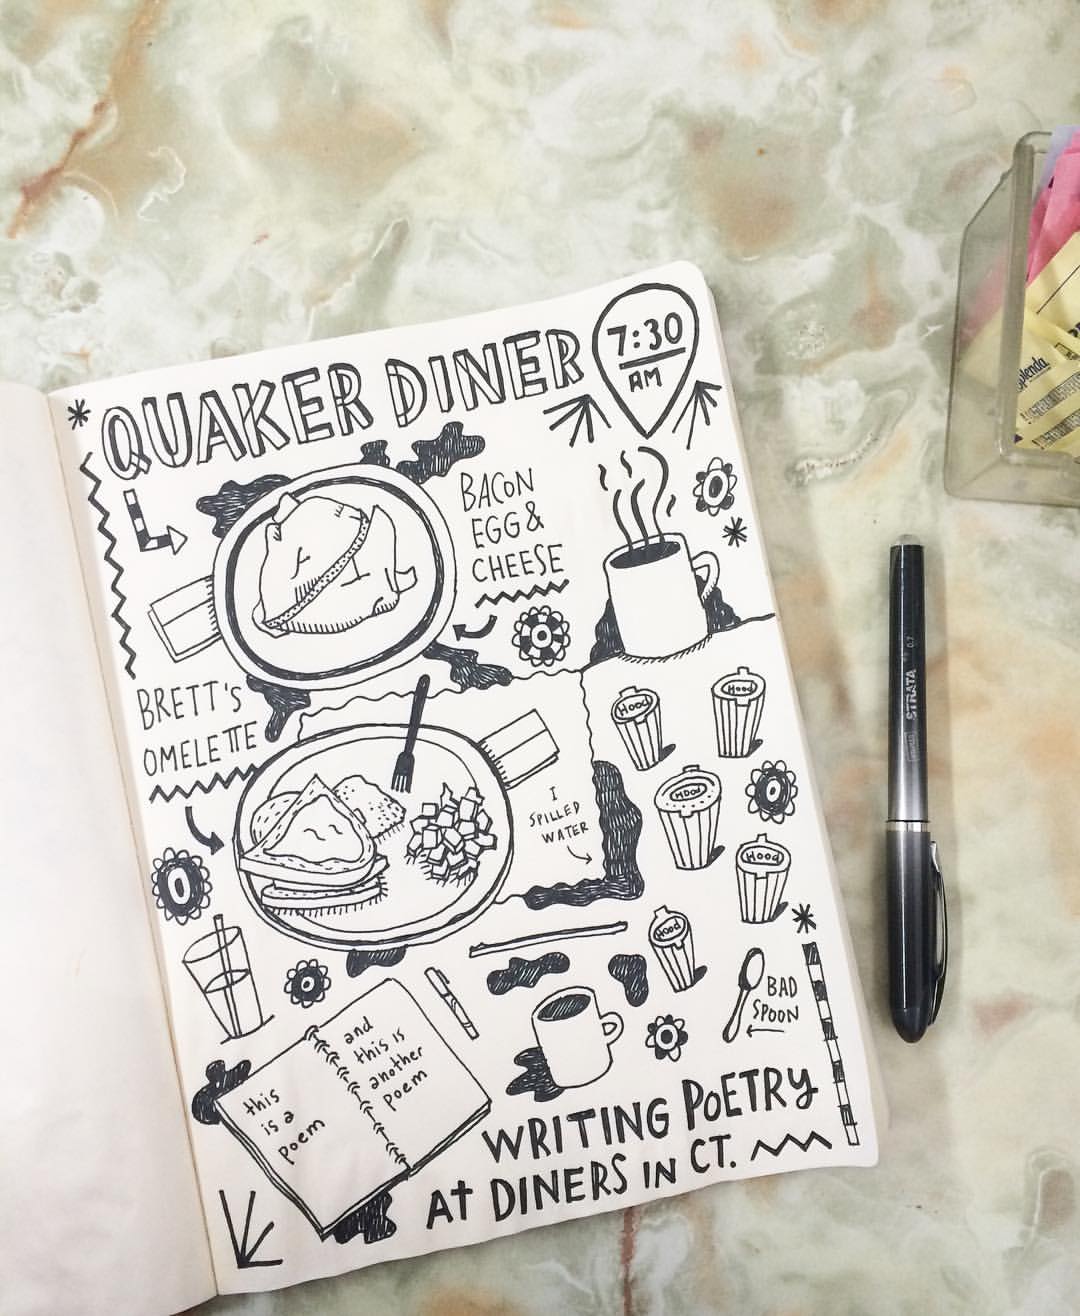 QUAKER DINER
7:30
AM
BACON
EGG &
CHEESE
BRETT's
OMELETTE
I
SPILLED
WATER
HOOD
HOOD
HOOD
HOOD
HOOD
BAD
SPOON
this
is a
poem
and
this is
another
poem
WRITING POETRY
At DINERS IN CT.
STRATA 0.7
Splenda